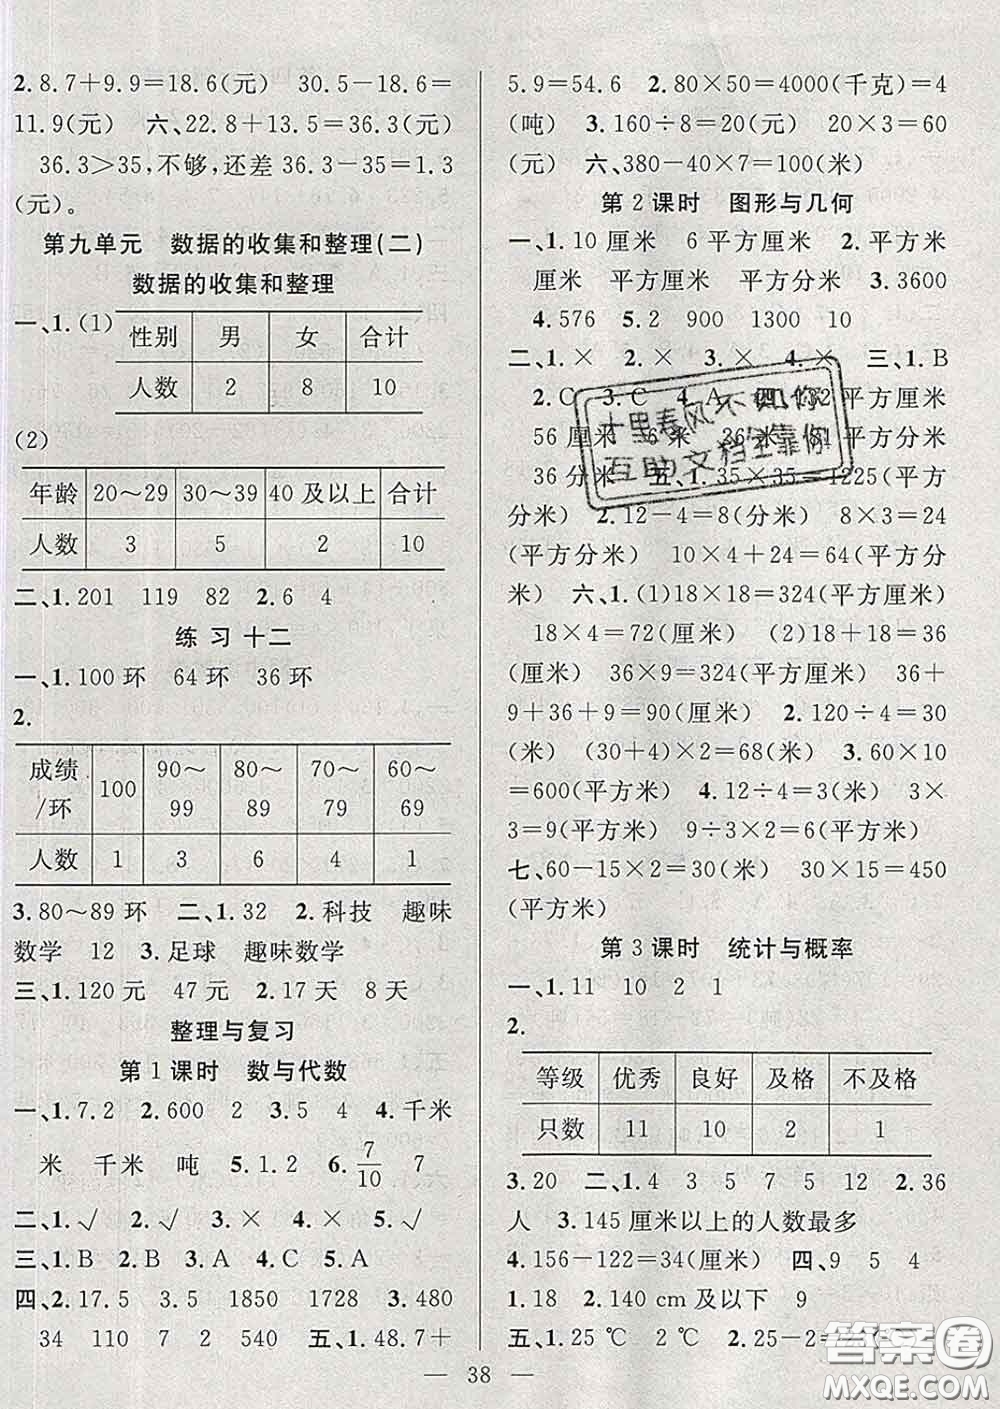 2.8.7＋9.9＝18.6(元)　30.5－18.6＝
11.9(元)　六、22.8＋13.5＝36.3(元)
36.3＞35,不够,还差 36.3－35＝1.3
(元)。
第九单元　数据的收集和整理(二)
数据的收集和整理
一、1.(1)
性别　男　女　合计
人数　2　8　10
(2)
年龄　20～29　30～39　40 及以上　合计
人数　3　5　2　10
二、1.201　119　82　2.6　4
练 习 十二
一、1.100 环　64 环　36 环
2.
成绩/环　100　90～99　80～89　70～79　60～69
人数　1　3　6　4　1
3.80～89 环　二、1.32　2.科技　趣味
数学　12　3.足球　趣味数学
三、1.120 元　47 元　2.17 天　8 天
整理与复习
第 1 课时　数与代数
一、1.7.2　2.600　2　3.5　4　4.千米
米　千米　吨　5.1.2　6.7/10　7
二、1.√　2.√　3.×　4.×　5.√
三、1.B　2.B　3.A　4.C　5.A
四、2.17.5　3.5　1850　1728　3.480
34　110　7　2　540　五、1.48.7＋
5.9＝54.6　2.80×50＝4000(千克)＝4
(吨)　3.160÷8＝20(元)　20×3＝60
(元)　六、380－40×7＝100(米)
第 2 课时　图形与几何
一、1.10 厘米　6 平方厘米　2.平方米
厘米　平方厘米　平方分米　3.3600
4.576　5.2　900　1300　10
二、1.×　2.×　3.×　4.×　三、1.B
2.C　3.C　4.A　四、1.32
56 厘米　6 米　24 平方米　2.平方
36 分米　五、1.35×35＝1225(平方
分米)　2.12－4＝8(分米)　8×3＝24
(平方分米)　10×4＋24＝64(平方分
米)　六、1.(1)18×18＝324(平方厘米)
18×4＝72(厘米)　(2)18＋18＝36
(厘米)　36×9＝324(平方厘米)　36＋
9＋36＋9＝90(厘米)　2.120÷4＝30
(米)　(30＋4)×2＝68(米)　3.60×10
＝600(平方米)　4.12÷4＝3(米)　3×
3＝9(平方米)　9÷3×2＝6(平方米)
七、60－15×2＝30(米)　30×15＝450
(平方米)
第 3 课时　统计与概率
一、1.11　10　2　1
2.
等级　优秀　良好　及格　不及格
只数　11　10　2　1
3.20　二、1.4　3　5　7　5　12　2.36
人　3.145 厘米以上的人数最多
4.156－122＝34(厘米)　四、9　5　4
1.18　2.140 cm 及以下　9
五、1.25 ℃　2 ℃　2.25－2＝
十里春风不如你
互助文档全靠你
答案圈
MXQE.COM
— 38 —